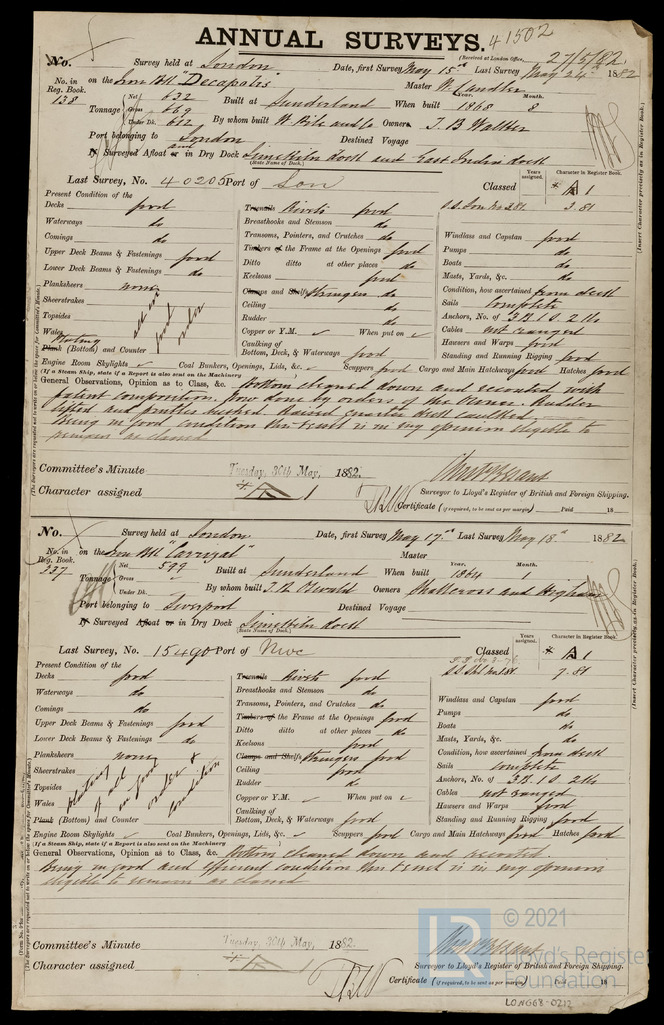 ANNUAL SURVEYS. 41502
(Received at London Office, 27/5/82
No. Survey held at London Date, first Survey May 15th Last Survey May 24th 1882
No. in Reg. Book. 138 on the Iron Bk "Decapolis" Master W. Candler
Tonnage Net 632 Gross 669 Under Dk. 612 Built at Sunderland When built Year. 1868 Month. 8
By whom built W. Pile and Co Owners T. B Walker
Port belonging to London Destined Voyage
If Surveyed Afloat and in Dry Dock Limekiln Dock and East India Dock
(State Name of Dock.)
Last Survey, No. 40205 Port of Lon Classed Years assigned. Character in Register Book. * A 1
S.S. Lon No 2 81. 3.81
Present Condition of the
Decks good Treenails Rivets good
Waterways do Breasthooks and Stemson do Windlass and Capstan good
Comings do Transoms, Pointers, and Crutches do Pumps do
Upper Deck Beams & Fastenings good Timbers of the Frame at the Openings good Boats do
Lower Deck Beams & Fastenings do Ditto ditto at other places do Masts, Yards, &c. do
Planksheers none Keelsons good Condition, how ascertained from deck
Sheerstrakes Clamps and Shelfs Stringers do Sails Complete
Topsides Ceiling do Anchors, No. of 3 B. 1 S. 2 Ks
Wales Rudder do Cables not ranged
Plating all in good order Copper or Y.M. When put on Hawsers and Warps good
Plank (Bottom) and Counter Caulking of Bottom, Deck, & Waterways good Standing and Running Rigging good
Engine Room Skylights Coal Bunkers, Openings, Lids, &c. Scuppers good Cargo and Main Hatchways good Hatches good
(If a Steam Ship, state if a Report is also sent on the Machinery
General Observations, Opinion as to Class, &c. Bottom cleaned down and recoated with
patent composition. Now done by orders of the Owner. Rudder
lifted and pintles bushed. Raised quarter deck caulked.
Being in good condition this Vessel is in my opinion eligible to
remain as classed
Committee's Minute Tuesday, 30th May, 1882.
Character assigned * A 1 Surveyor to Lloyd's Register of British and Foreign Shipping.
Certificate (if required, to be sent as per margin) Paid 18
No. Survey held at London Date, first Survey May 17th Last Survey May 18th 1882
No. in Reg. Book. 237 on the Iron Bk "Carrizal" Master
Tonnage Net 599 Gross Under Dk. Built at Sunderland When built Year. 1864 Month. 1
By whom built J. R. Oswald Owners Shallcross and Higham
Port belonging to Liverpool Destined Voyage
If Surveyed Afloat or in Dry Dock Limekiln Dock
(State Name of Dock.)
Last Survey, No. 15490 Port of Nwc Classed Years assigned. Character in Register Book. * A 1
7.81
Present Condition of the
Decks good Treenails Rivets good
Waterways do Breasthooks and Stemson do Windlass and Capstan good
Comings do Transoms, Pointers, and Crutches do Pumps do
Upper Deck Beams & Fastenings good Timbers of the Frame at the Openings good Boats do
Lower Deck Beams & Fastenings do Ditto ditto at other places do Masts, Yards, &c. do
Planksheers none Keelsons good Condition, how ascertained from deck
Sheerstrakes Clamps and Shelfs Stringers good Sails complete
Topsides Ceiling good Anchors, No. of 3 B. 1 S. 2 Ks
Wales Rudder do Cables not ranged
plating of all in good order & condition Copper or Y.M. When put on Hawsers and Warps good
Plank (Bottom) and Counter Caulking of Bottom, Deck, & Waterways good Standing and Running Rigging good
Engine Room Skylights Coal Bunkers, Openings, Lids, &c. Scuppers good Cargo and Main Hatchways good Hatches good
(If a Steam Ship, state if a Report is also sent on the Machinery
General Observations, Opinion as to Class, &c. Bottom cleaned down and recoated.
Being in good and efficient condition this Vessel is in my opinion
eligible to remain as classed
Committee's Minute Tuesday, 30th May, 1882.
Character assigned * A 1 Surveyor to Lloyd's Register of British and Foreign Shipping.
Certificate (if required, to be sent as per margin) Paid 18
(Insert Character precisely as in Register Book.)
(The Surveyors are requested not to write on or below the space for Committee's Minute.)
LR © 2021
Lloyd's Register
Foundation
LONG68-0212